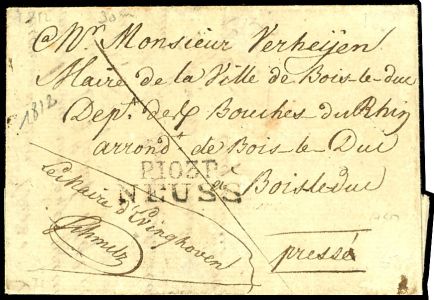 a Mr Monsieur Verheijen
Maire de la Ville de Bois-le-duc
Dept de Bouches du Rhin
arrondt de Bois le Duc
a Boisleduc
P103P
NEUSS
1812
Le Maire d'Evinghoven
Schmitz
pressé